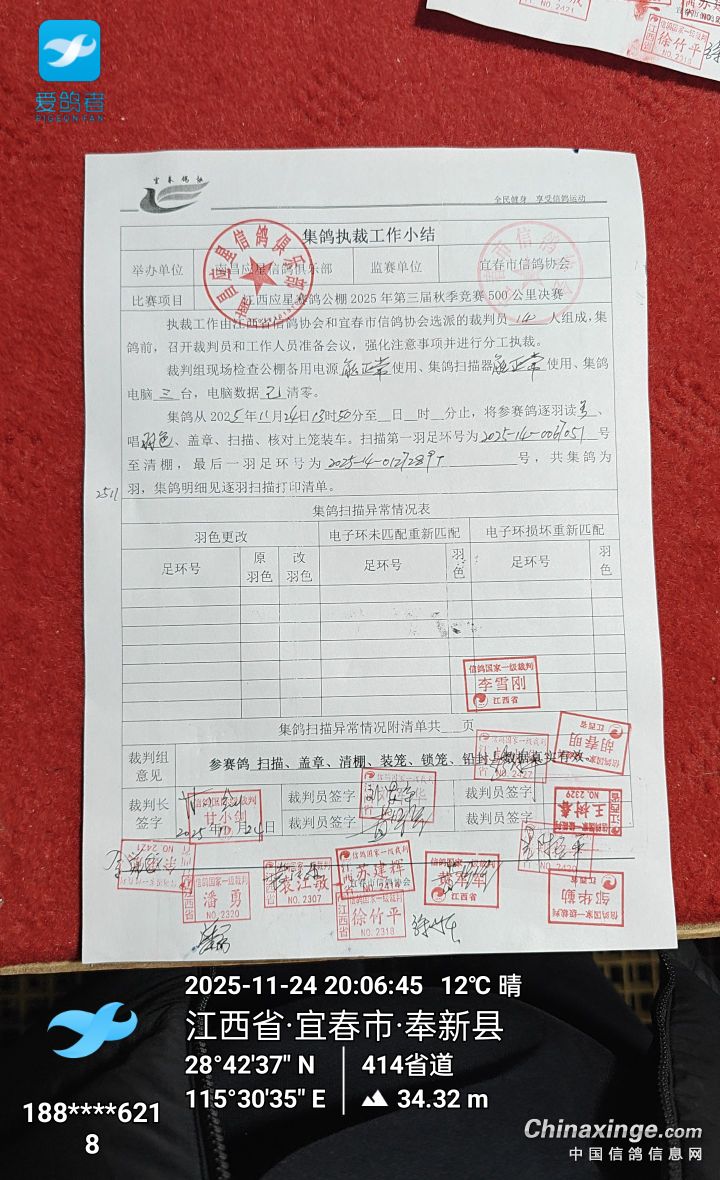 爱鸽者
PIGEONFAN
NO. 2421
江西省
徐竹平
NO. 2318
宜春鸽协
全民健身 享受信鸽运动
集鸽执裁工作小结
举办单位 南昌应星信鸽俱乐部 监赛单位 宜春市信鸽协会
比赛项目 江西应星赛鸽公棚 2025 年第三届秋季竞赛 500 公里决赛
执裁工作由江西省信鸽协会和宜春市信鸽协会选派的裁判员 人组成,集
鸽前,召开裁判员和工作人员准备会议,强化注意事项并进行分工执裁。
裁判组现场检查公棚备用电源 能正常 使用、集鸽扫描器 能正常 使用、集鸽
电脑 三 台,电脑数据 已 清零。
集鸽从 2025 年 11 月 24 日 13 时 50 分至 日 时 分止,将参赛鸽逐羽读
唱 羽色、盖章、扫描、核对上笼装车。扫描第一羽足环号为 2025-14-0067051 号
至清棚,最后一羽足环号为 号,共集鸽为
2511 羽,集鸽明细见逐羽扫描打印清单。
集鸽扫描异常情况表
羽色更改 电子环未匹配重新匹配 电子环损坏重新匹配
足环号 原羽色 改羽色 足环号 羽色 足环号 羽色
信鸽国家一级裁判
李雪刚
江西省
集鸽扫描异常情况附清单共 页
裁判组意见 参赛鸽 扫描、盖章、清棚、装笼、锁笼、铅封 数据真实有效。
NO. 2427
胡春明
江西省
裁判长签字 裁判员签字 裁判员签字
甘小剑
2025 年 11 月 24 日 裁判员签字 裁判员签字
王树喜
NO. 2329
江西省
NO. 2421
信鸽国家一级裁判
潘勇
NO. 2320
江西省
袁江敏
NO. 2307
信鸽国家一级裁判
苏建辉
宜春市信鸽协会
徐竹平
NO. 2318
江西省
江西省
邹华勤
信鸽国家一级裁判
江西省
2025-11-24 20:06:45 12℃ 晴
江西省·宜春市·奉新县
28°42'37" N 414省道
115°30'35" E 34.32 m
188****621
8
Chinaxinge.com
中国信鸽信息网